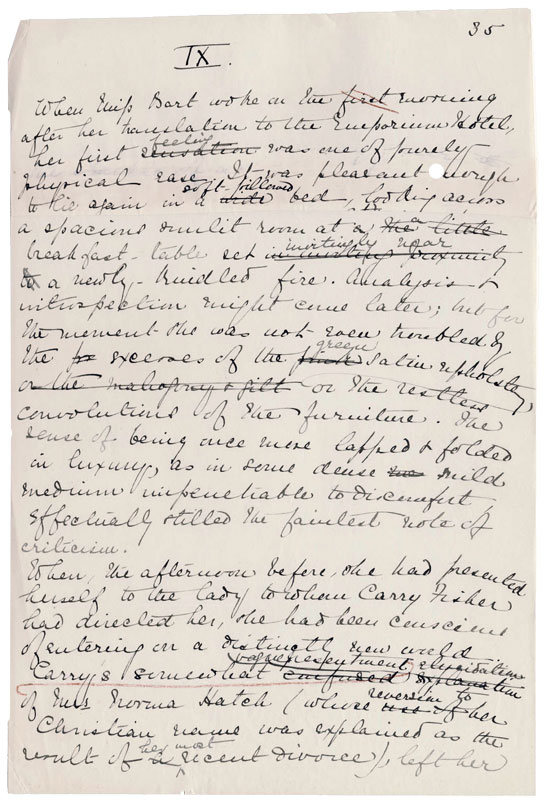 35
IX.
When Miss Bart woke on the first morning
after her translation to the Emporium Hotel,
her first sensation feeling was one of purely
physical ease. It was pleasant enough
to lie again in a wide soft-pillowed bed, looking across
a spacious sunlit room at a the little a
breakfast-table set in inviting proximity invitingly near
to a newly-kindled fire. Analysis &
introspection might come later; but for
the moment she was not even troubled by
the excesses of the green satin upholstery,
or the mahogany & gilt or the restless
convolutions of the furniture. The
sense of being once more lapped & folded
in luxury, as in some dense mild
medium impenetrable to discomfort,
effectually stilled the faintest note of
criticism.
When, the afternoon before, she had presented
herself to the lady to whom Carry Fisher
had directed her, she had been conscious
of entering on a distinctly new world
Carry's somewhat confused explanation elucidation
of Mrs Norma Hatch (whose use of reversion to her
Christian name was explained as the
result of a her most recent divorce), left her